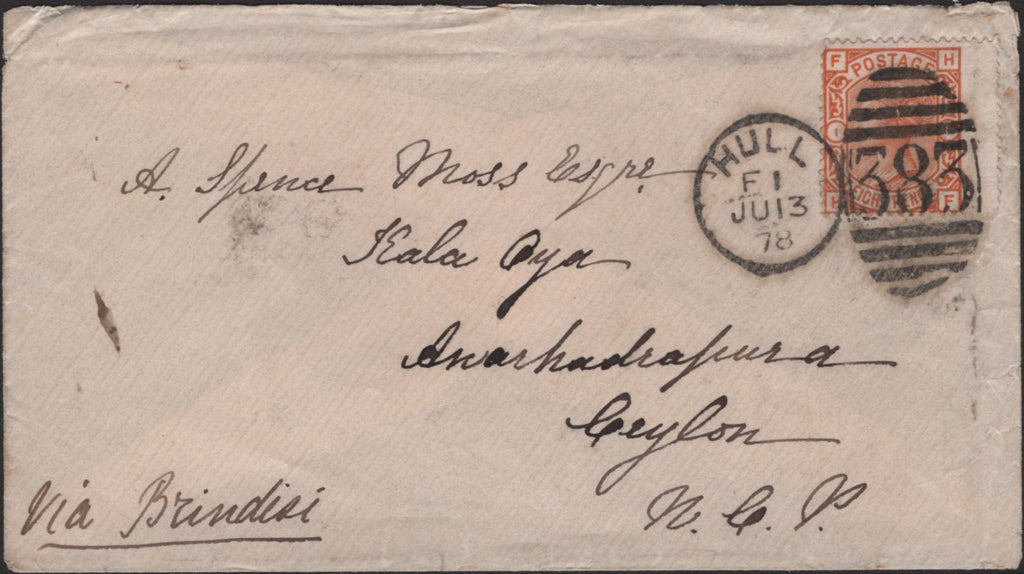 F POSTAGE H
HULL
F1
JU 13
78
383
H F
A. Spence Moss Esqre
Kala Oya
Anarhadrapura
Ceylon
N. C. P.
Via Brindisi